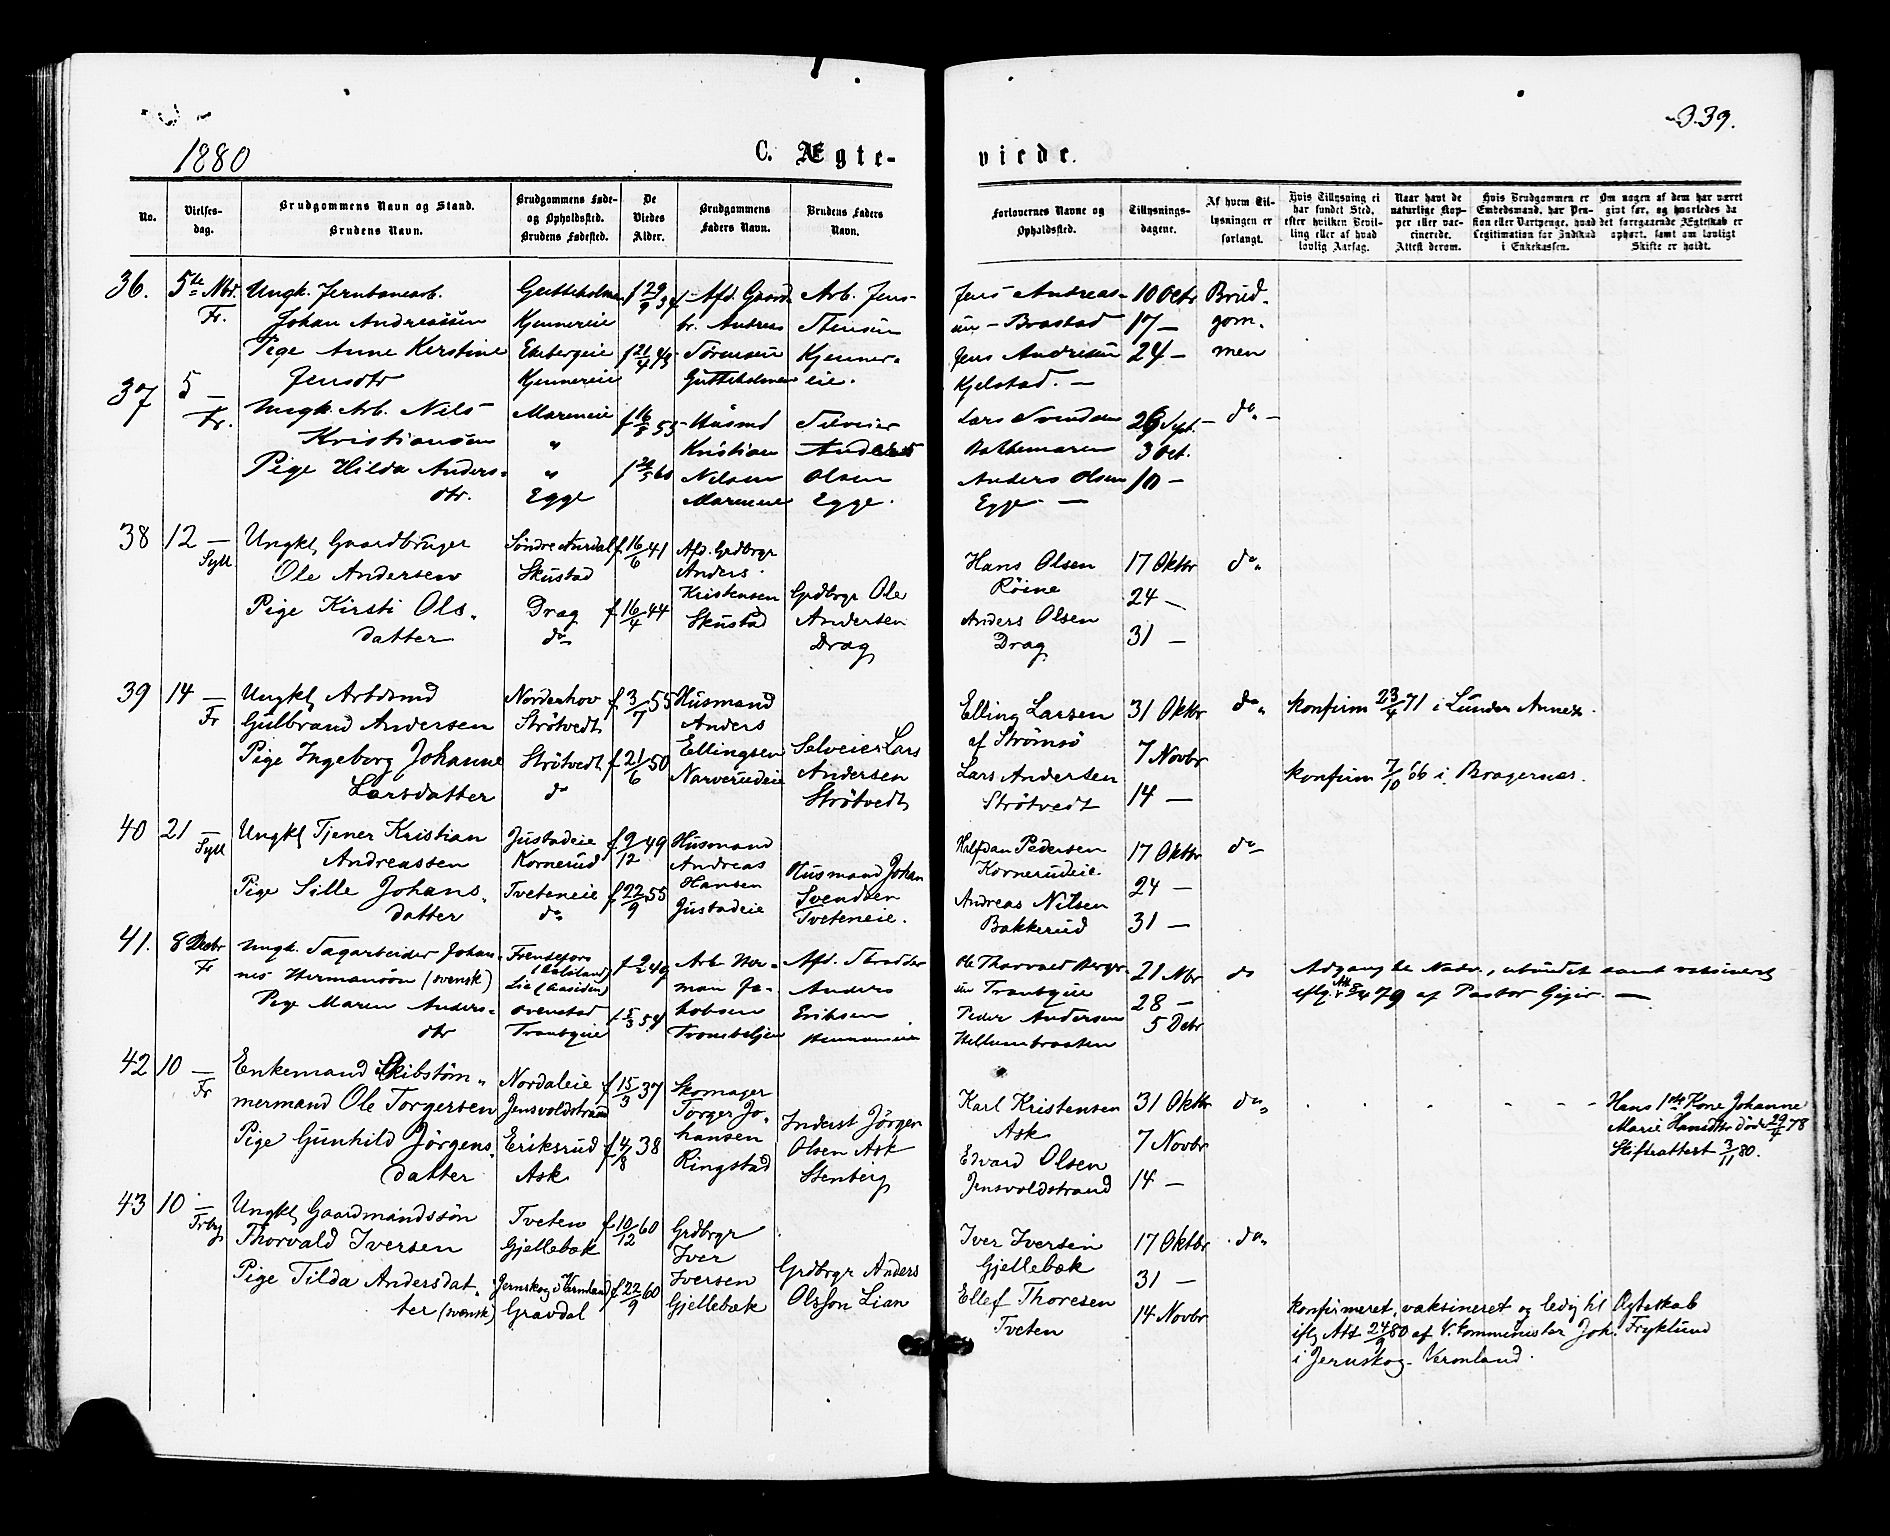 1880
C. Ægte-
viede.
339.
No.
Vielses-
dag.
Brudgommens Navn og Stand.
Brudens Navn.
Brudgommens Føde-
og Opholdssted.
Brudens Fødested.
De
Viedes
Alder.
Brudgommens
Faders Navn.
Brudens Faders
Navn.
Forlovernes Navne og
Opholdssted.
Tillysnings-
dagene.
Af hvem Til-
lysningen er
forlangt.
Hvis Tillysning ei
har fundet Sted,
efter hvilken Bevil-
ling eller af hvad
lovlig Aarsag.
Naar havt de
naturlige Kop-
per eller vac-
cinerede.
Attest derom.
Hvis Brudgommen er
Embedsmand, har Pen-
sion eller Vartpenge, hvad
Legitimation for Indskud
i Enkekassen.
Om nogen af dem har været
gift før, og hvorledes da
det foregaaende Ægteskab er
ophørt, samt om lovligt
Skifte er holdt.
36.
5te Nbr.
Fr.
Ungk. Jernbanearb.
Johan Andreassen
Pige Anne Kerstine
Jensdtr
Gutteholmen
Kjennereie
Ekebergeie
Kjennereie
f 29/9 34
f 21/4 43
Afd. Gaard-
br. Andreas
Sørensen
Gutteholmen
Arb. Jens
Stensen
Kjenner-
eie.
Jens Andreas-
sen - Brastad
Jens Andresen
Kjelstad. -
10 Octr
17 -
24 -
Brud-
gom-
men
37
5 -
Fr.
Ungk. Arb. Nils
Kristiansen
Pige Hilda Anders-
dtr.
Mareneie
"
"
Egge
f 16/8 53
f 60
Husmd
Kristian
Nilsen
Mareneie
Selveier
Anders
Olsen
Egge.
Lars Svendsen
Anders Olsen
Egge. -
26 Sept. -
3 Oct.
10 -
do -
38
12 -
Syll
Ungkl Gaardbruger
Ole Andersen
Pige Kirsti Ols-
datter
Søndre Aurdal
Skustad
Drag
do
f 16/6 41
f 16/4 44
Afd. Grdbrgr
Anders
Kristensen
Skustad
Grdbrgr Ole
Andersen
Drag
Hans Olsen
Røine
Anders Olsen
Drag
17 Oktbr
24 -
31 -
do
39
14 -
Fr
Ungkl Arbdsmd
Gulbrand Andersen
Pige Ingeborg Johanne
Larsdatter
Norderhov
Strøtvedt
Strøtvedt
do
f 3/7 55
f 21/6 50
Husmand
Anders
Ellingsen
Narverudeie
Selveier Lars
Andersen
Strøtvedt
Elling Larsen
af Strømsø
Lars Andersen
Strøtvedt
31 Oktbr
7 Novbr
14 -
do
konfirm 23/4 71 i Lunder Annex.
konfirm 7/10 66 i Bragernæs.
40
21 -
Syll
Ungkl Tjener Kristian
Andreassen
Pige Sille Johans-
datter
Justadeie
Kornerud
Tveteneie
do
f 9/12 49
f 22/9 55
Husmand
Andreas
Hansen
Justadeie
Husmand Johan
Svendsen
Tveteneie.
Halfdan Pedersen
Kornerudeie
Andreas Nilsen
Bakkerud
17 Oktbr
24 -
31 -
do
41.
8 Decbr
Fr
Ungk. Sagarbeider Johan-
nes Hermansøn (svensk)
Pige Maren Anders-
dtr
Lie (Aasiden)
Ovenstad
Tranbyeie
f 9/2 49
f 5/3 54
Arb. Her-
man Ja-
kobsen
Afd. Skrædder
Anders
Eriksen
Ole Thorvald Berger-
sen Tranbyeie
Peder Andersen
Hellumbraaten
21 Nbr
28 -
5 Decbr
do
42
10 -
Fr
Enkemand Skibstøm-
mermand Ole Torgersen
Pige Gunhild Jørgens-
datter
Nordaleie
Jensvoldstrand
Eriksrud
Ask
f 15/3 37
f 4/8 38
Skomager
Torger Jo-
hansen
Ringstad
Inderst Jørgen
Olsen Ask
Stenberg
Karl Kristensen
Ask
Edvard Olsen
Jensvoldstrand
31 Oktbr
7 Novbr
14 -
do
Hans 1ste Kone Johanne
Marie Hansdtr døde 29/4 78
Skifteattest 3/11 80.
43
10 -
Frby
Ungkl Gaardmandssøn
Thorvald Iversen
Pige Tilda Andersdat-
ter (svensk)
Tveten
Gjellebæk
Jernskog i Vermland
Gravdal
f 10/12 60
f 22/9 60
Grdbrgr
Iver
Iversen
Gjellebæk
Grdbrgr Anders
Olsson Lian
Iver Iversen
Gjellebæk
Ellef Thoresen
Tveten
17 Oktbr
31 -
14 Novbr
do
konfirmeret, vaksineret og ledig til Ægteskab
iflg Att 24/9 80 af V. Komminister Joh. Fryklund
i Jernskog - Vermland.